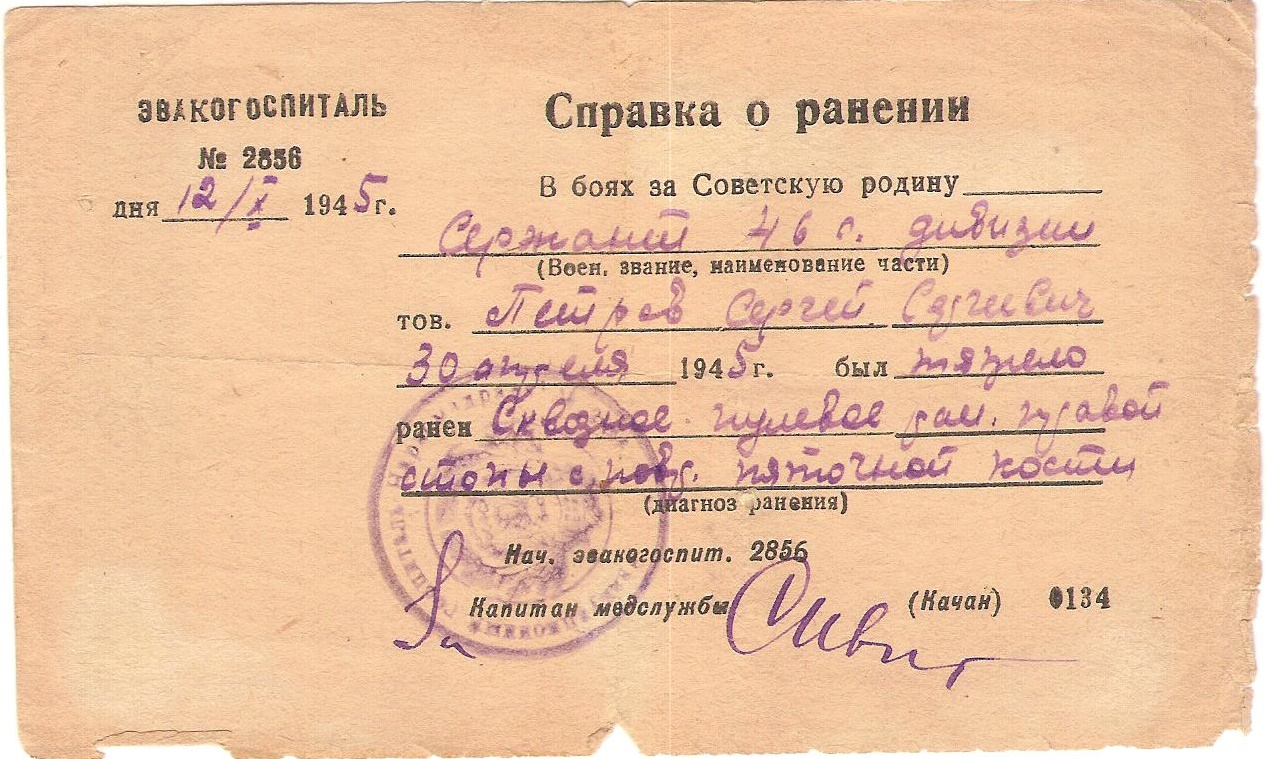 ЭВАКОГОСПИТАЛЬ
№ 2856
дня 12/X 1945г.
Справка о ранении
В боях за Советскую родину
Сержант 46 с. дивизии
(Воен. звание, наименование части)
тов. Петров Сергей Сергеевич
30 апреля 1945г. был тяжело
ранен Сквозное пулевое ран. правой
стопы с повр. пяточной кости
(диагноз ранения)
Нач. эвакогоспит. 2856
За Капитан медслужбы (Качан) 0134